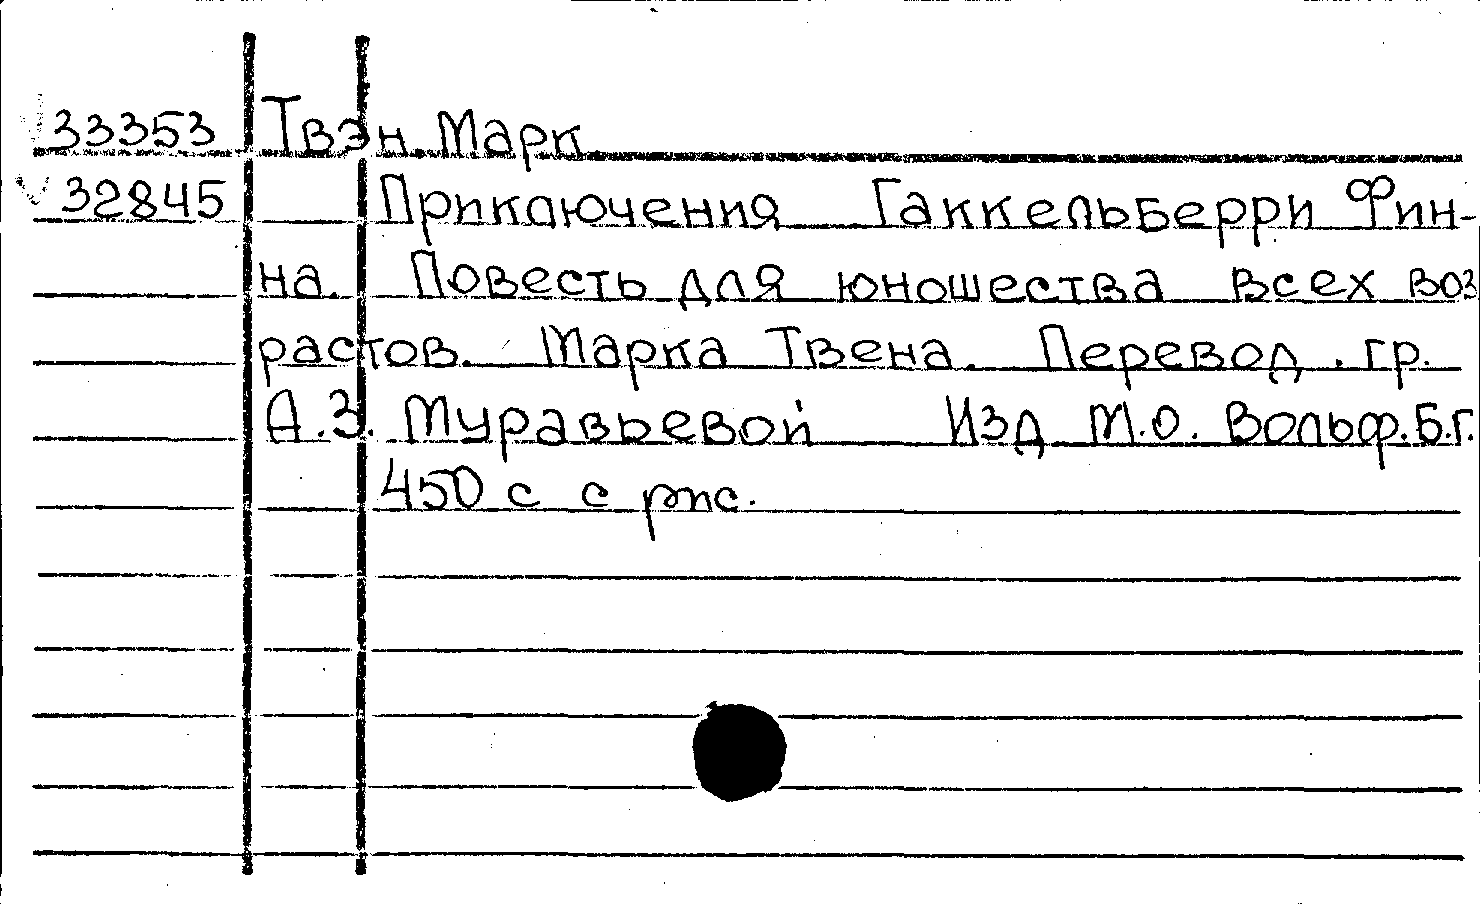 33353 Твэн Марк
32845 Приключения Гаккельберри Фин-
на. Повесть для юношества всех воз
растов. Марка Твена. Перевод. гр.
А.З. Муравьевой Изд М.О. Вольф.Б.Г.
450 с с рис.